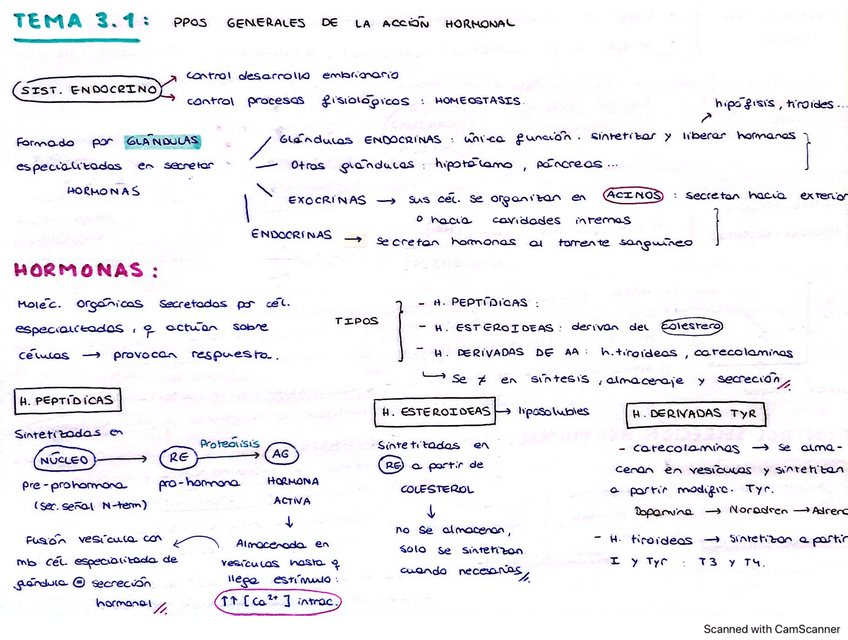 TEMA 3.1: PPOS GENERALES DE LA ACCIÓN HORMONAL
SIST. ENDOCRINO
control desarrollo embrionario
control procesos fisiológicos: HOMEOSTASIS.
hipófisis, tiroides...
Formado por GLÁNDULAS
especializadas en secretar
HORMONAS
Glándulas ENDOCRINAS: única función. sintetizar y liberar hormonas
Otras glándulas: hipotálamo, páncreas...
EXOCRINAS → sus cél. se organizan en ACINOS: secretan hacia exterior
o hacia cavidades internas
ENDOCRINAS → secretan hormonas al torrente sanguíneo
HORMONAS:
Moléc. orgánicas secretadas por cél.
especializadas, q actúan sobre
células → provocan respuesta.
TIPOS
- H. PEPTÍDICAS:
- H. ESTEROIDEAS: derivan del colesterol
- H. DERIVADAS DE AA: h. tiroideas, catecolaminas
↳ Se ≠ en síntesis, almacenaje y secreción
H. PEPTÍDICAS
Sintetizadas en
NÚCLEO → RE → Proteólisis → AG
pre-prohormona
(sec. señal N-term)
pro-hormona
HORMONA
ACTIVA
↓
Almacenada en
vesículas hasta q
llega estímulo:
↑↑ [Ca2+] intrac.
Fusión vesícula con
mb cél especializada de
glándula = secreción
hormonal
H. ESTEROIDEAS → liposolubles
Sintetizadas en
RE a partir de
COLESTEROL
↓
no se almacenan,
solo se sintetizan
cuando necesarias
H. DERIVADAS TYR
- catecolaminas → se alma-
cenan en vesículas y sintetizan
a partir modific. Tyr.
Dopamina → Noradren → Adrena
- H. tiroideas → sintetizan a partir
I y Tyr : T3 y T4.
Scanned with CamScanner